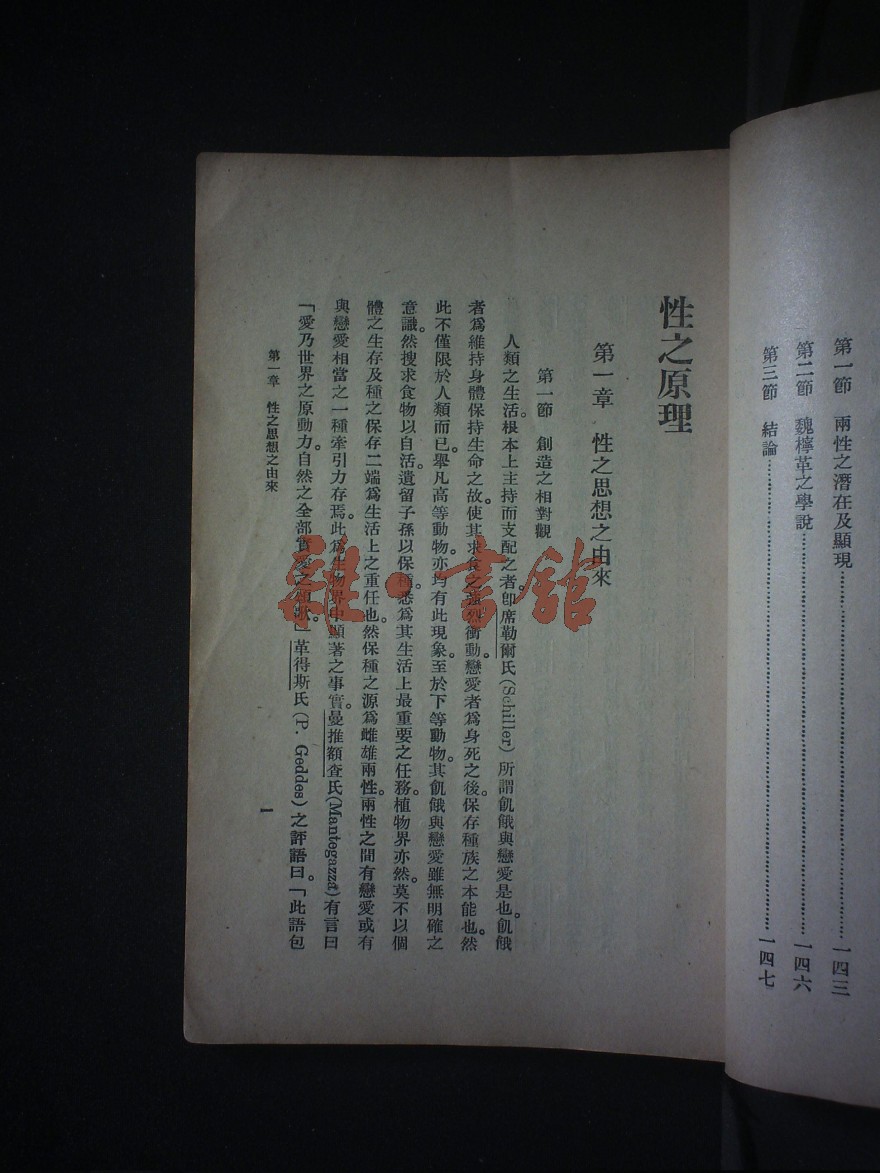 第一節　兩性之潛在及顯現……一四三
第二節　魏檸革之學說……一四六
第三節　結論……一四七
性之原理
第一章　性之思想之由來
第一節　創造之相對觀
人類之生活。根本上主持而支配之者。卽席勒爾氏(Schiller)所謂飢餓與戀愛是也。飢餓
者爲維持身體保持生命之故。使其求食之強烈衝動。戀愛者爲身死之後。保存種族之本能也。然
此不僅限於人類而已。舉凡高等動物。亦均有此現象。至於下等動物。其飢餓與戀愛雖無明確之
意識。然搜求食物以自活。遺留子孫以保種。悉爲其生活上最重要之任務。植物界亦然。莫不以個
體之生存及種之保存二端爲生活上之重任也。然保種之源爲雌雄兩性。兩性之間有戀愛或有
與戀愛相當之一種牽引力存焉。此爲生物界中顯著之事實。曼推額查氏(Mantegazza)有言曰
「愛乃世界之原動力。自然之全部實愛之頌歌。」革得斯氏(P. Geddes)之評語曰。「此語包
第一章　性之思想之由來
一
雜·書館